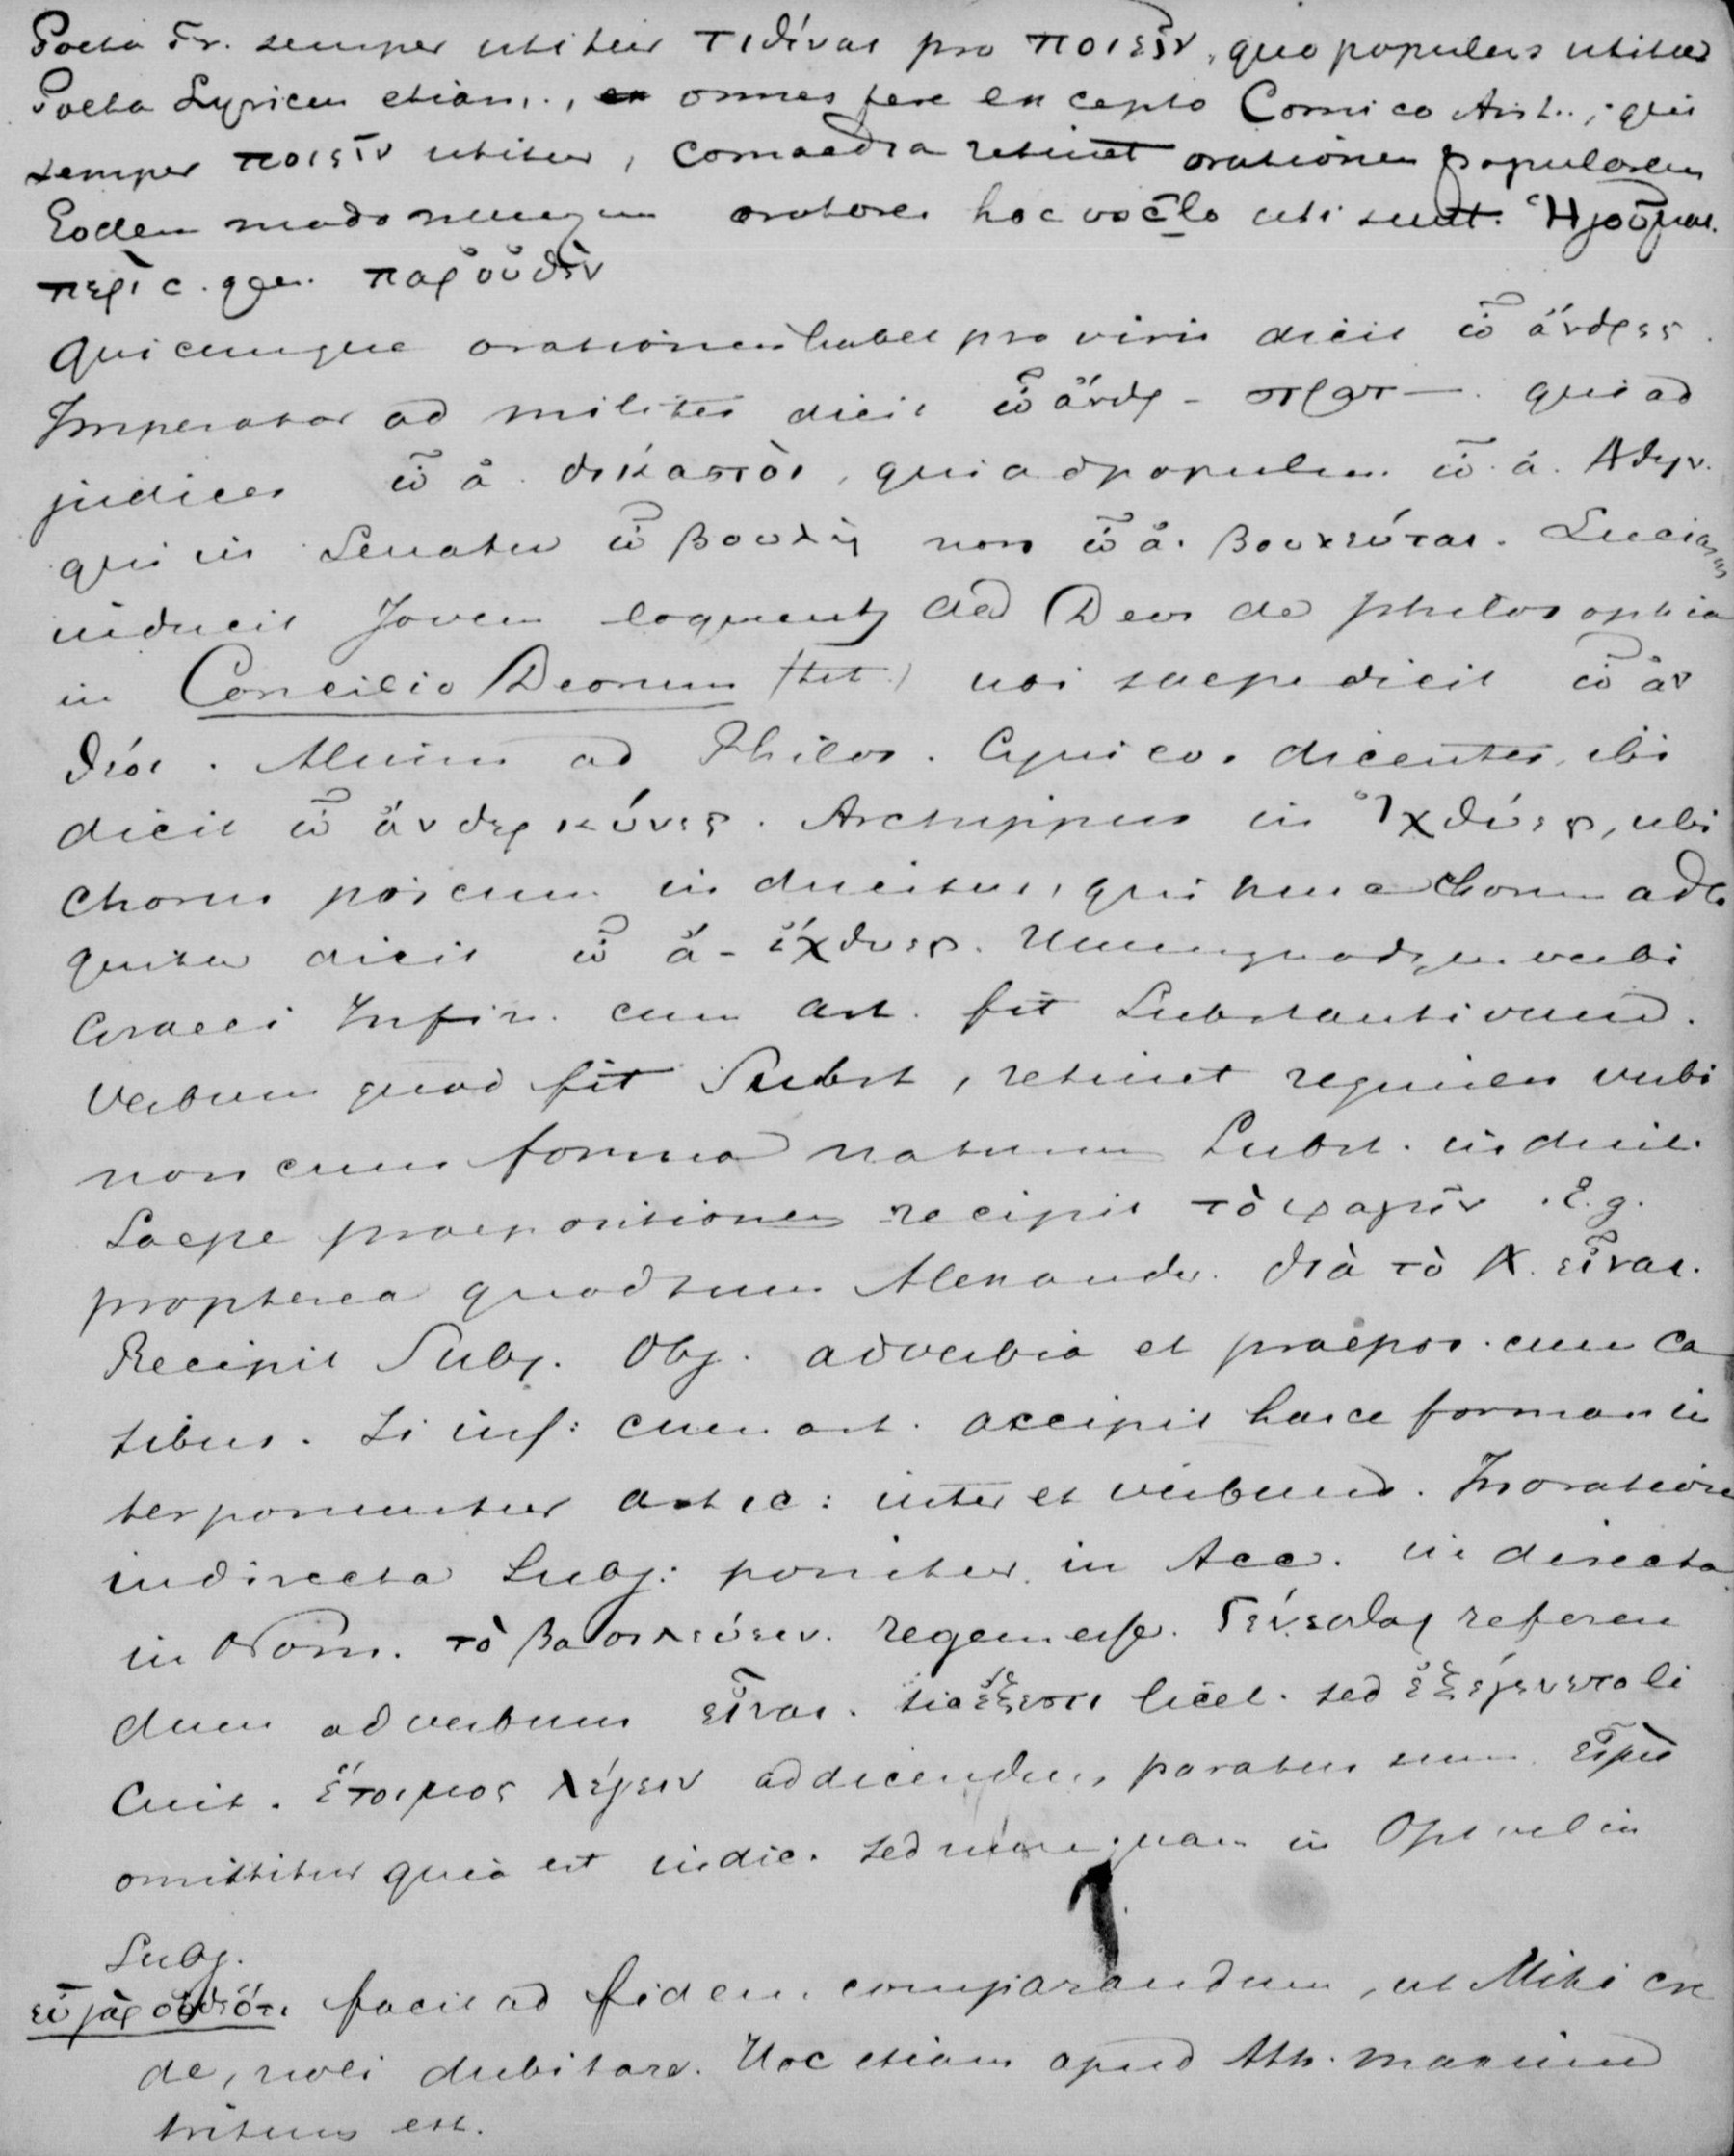 Poeta Tr. semper utitur τιθέναι pro ποιεῖν, quo populus utitur
Poeta Lyricus etiam, omnes fere excepto Comico Arist., qui
semper ποιεῖν utitur, comoedia retinet orationem popularem
Eodem modo nunquam oratores hoc voc̄lo usi sunt. Ἡγοῦμαι
περὶ παρ' οὐδὲν
Quicumque orationem habet pro viris dicit ὦ ἄνδρες.
Imperator ad milites dicit ὦ ἄνδρ - στρατ—. qui ad
judices ὦ ἄ. δικασταὶ, qui ad populum ὦ. ἄ. Αθην.
qui in Senatu ὦ βουλὴ non ὦ ἄ. βουλεύται. Lucianus
inducit Jovem loquentem ad Deos de philosophia
in Concilio Deorum ubi saepe dicit ὦ ἄν
θεοι. Alium ad Philos. Cynicos dicentes, ibi
dicit ὦ ἄνδερ κύνες. Archippus in Ἰχθύες, ubi
chorus piscum inducitur, qui hunc chorum adlo
quitur dicit ὦ ἄ- ἴχθυες. Unumquodque verbi
Graeci Infin. cum art. fit Substantivum.
Verbum quod fit Subst, retinet regimen verbi
non cum forma naturam Subst. induit.
Saepe praepositionem recipit τὸ φαγεῖν. E.g.
propterea quod sum Alexander. διὰ τὸ Α. εἶναι.
Recipit Subj. Obj. adverbia et praepos. cum ca
sibus. Si inf: cum art. accipit hasce formas in
terponuntur art ic: inter et verbum. In oratione
indirecta Subj: ponitur in Acc. in directa
in Nom. τὸ βασιλεύειν. regem esse. Γενέσθαι referen
dum ad verbum εἶναι. sic ἔξεστι licet. sed ἐξέγενετο li
cuit. ἕτοιμος λέγειν ad dicendum paratus sum. εἰμι
omittitur quia est indic. sed nunquam in Opt vel in
Subj.
εὖ γὰρ οἶδ' ὅτι facit ad fidem comparandum, ut Mihi cre
de, noli dubitare. Hoc etiam apud Ath. maxime
tritum est.